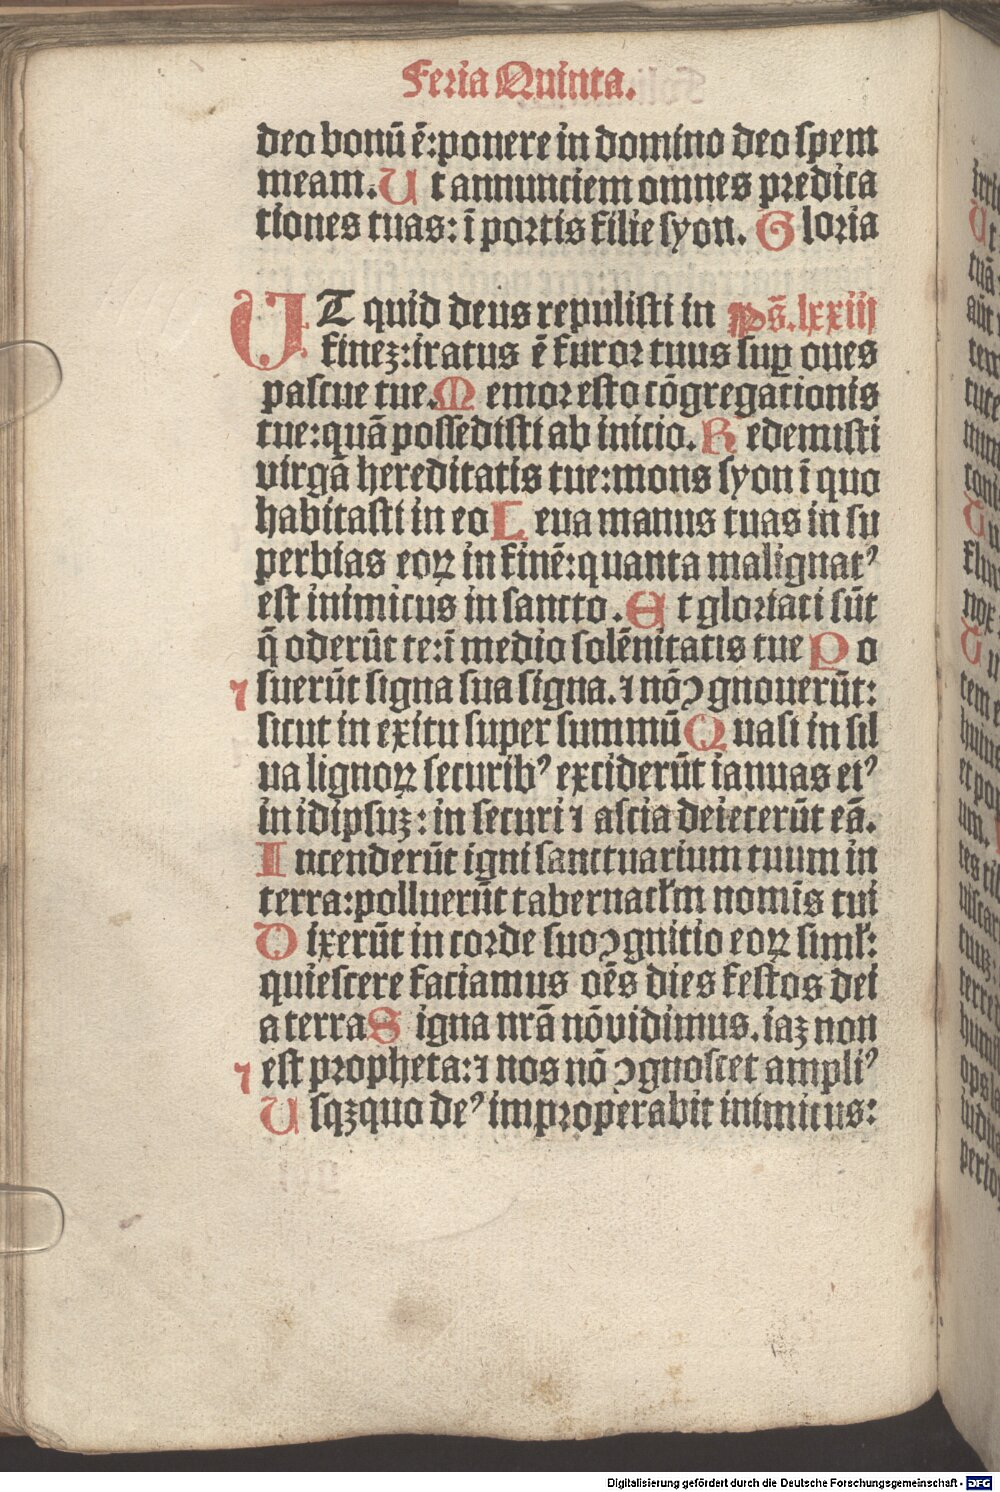 Feria Quinta.
deo bonū ē:ponere in domino deo spem
meam. Ut annunciem omnes predica
tiones tuas: ī portis filie syon. Gloria
UT quid deus repulisti in Ps̄. lxxiii
finez:iratus ē furor tuus suꝑ oues
pascue tue. Memor esto cōgregationis
tue:quā possedisti ab inicio. Redemisti
virgā hereditatis tue:mons syon ī quo
habitasti in eo Leua manus tuas in su
perbias eoꝝ in finē:quanta malignatꝰ
est inimicus in sancto. Et gloriati sūt
q̄ oderūt te:ī medio solēnitatis tue Po
suerūt signa sua signa. ⁊ nō ꝯgnouerūt:
sicut in exitu super summū Quasi in sil
ua lignoꝝ securibꝰ exciderūt ianuas eiꝰ
in idipsuz: in securi ⁊ ascia deiecerūt eā.
Incenderūt igni sanctuarium tuum in
terra:polluerūt tabernacl̄m nomīs tui
Dixerūt in corde suo ꝯgnitio eoꝝ siml̄:
quiescere faciamus oēs dies festos dei
a terra Signa nr̄ā nō vidimus. iaz non
est propheta:⁊ nos nō ꝯgnoscet ampliꝰ
Usqzquo deꝰ improperabit inimicus:
Digitalisierung gefördert durch die Deutsche Forschungsgemeinschaft - DFG